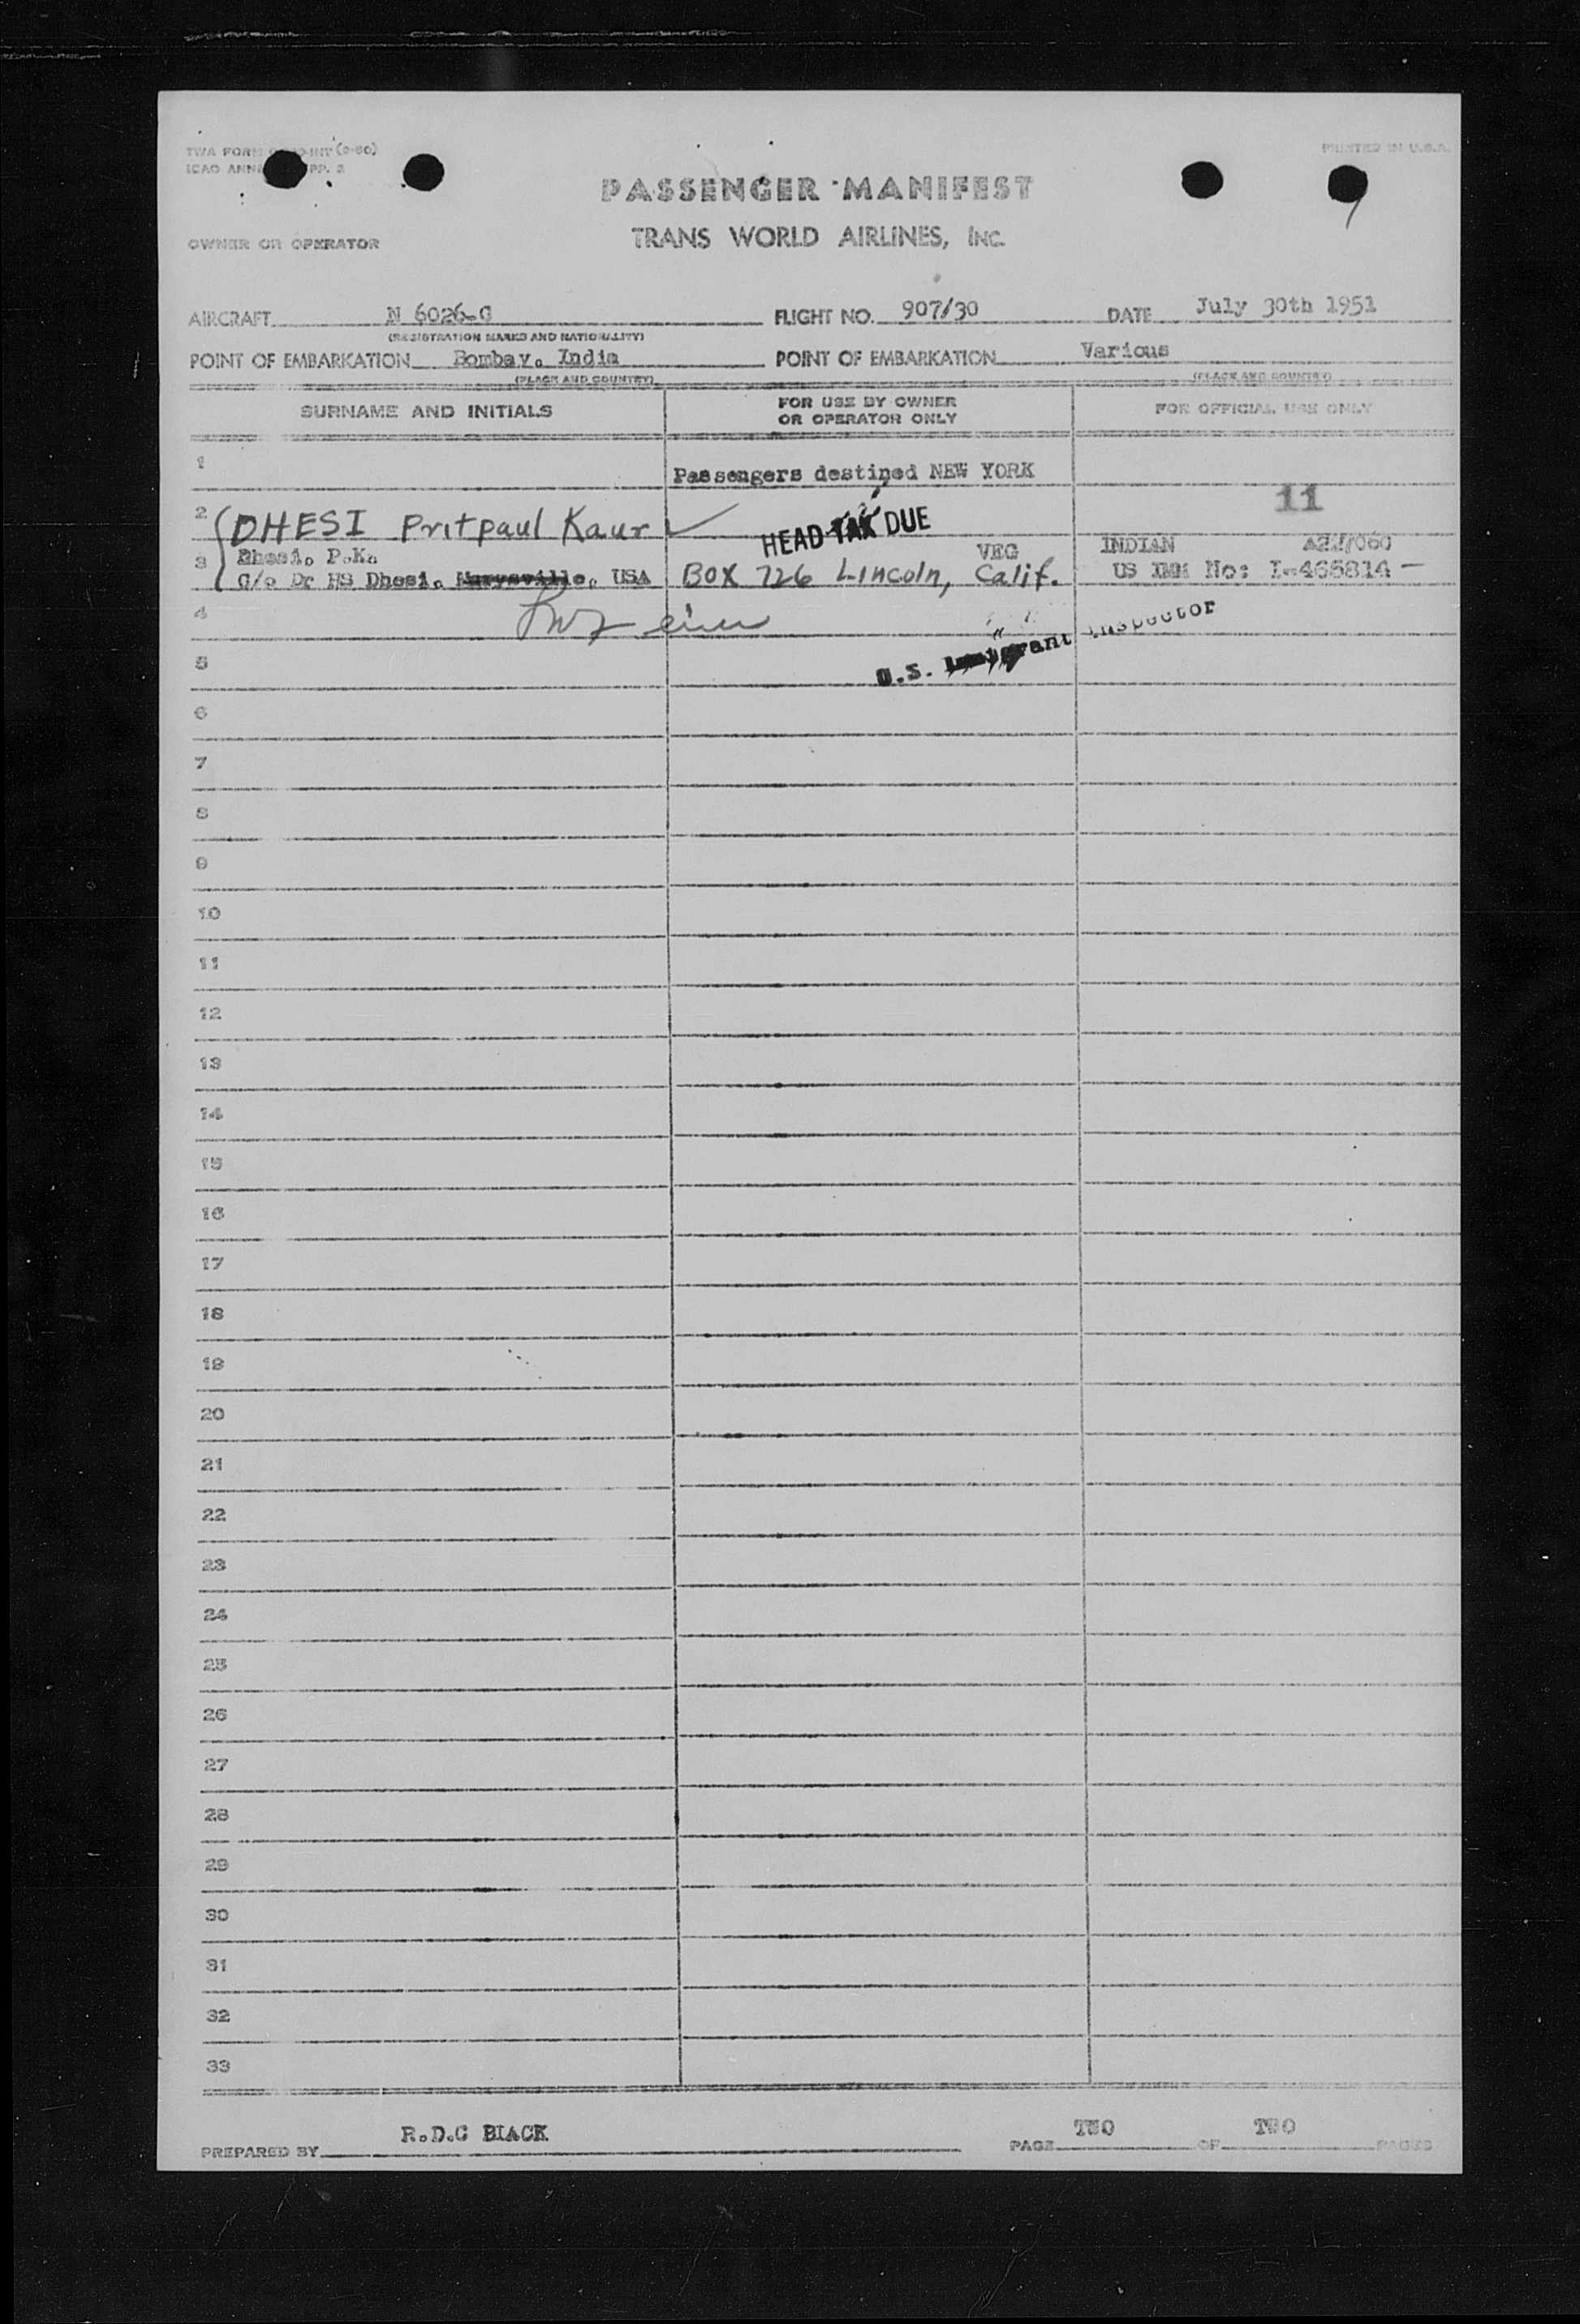 TWA FORM (2-50)
PRINTED IN U.S.A.
ICAO PP. 2
PASSENGER MANIFEST
OWNER OR OPERATOR
TRANS WORLD AIRLINES, INC.
AIRCRAFT N 6026-C FLIGHT NO. 907/30 DATE July 30th 1951
(REGISTRATION MARKS AND NATIONALITY)
POINT OF EMBARKATION Bombay. India POINT OF EMBARKATION Various
(PLACE AND COUNTRY) (PLACE AND COUNTRY)
SURNAME AND INITIALS FOR USE BY OWNER OR OPERATOR ONLY FOR OFFICIAL USE ONLY
1 Passengers destined NEW YORK
11
2 DHESI Pritpaul Kaur
HEAD TAX DUE
3 Dhesi. P.K. VEG INDIAN
C/o Dr HS Dhesi. Marysville. USA BOX 726 Lincoln, Calif. US IMM No: I-465814
4
U.S. Immigrant Inspector
5
6
7
8
9
10
11
12
13
14
15
16
17
18
19
20
21
22
23
24
25
26
27
28
29
30
31
32
33
PREPARED BY R.D.C BLACK PAGE TWO OF TWO PAGES